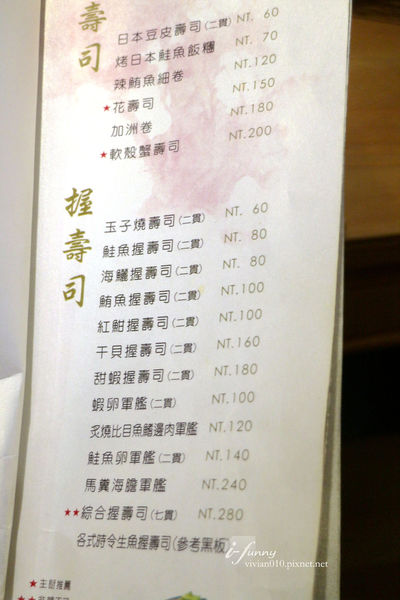 壽司
日本豆皮壽司(二貫) NT. 60
烤日本鮭魚飯糰 NT. 70
辣鮪魚細卷 NT.120
★花壽司 NT.150
加洲卷 NT.180
★軟殼蟹壽司 NT.200
握壽司
玉子燒壽司(二貫) NT. 60
鮭魚握壽司(二貫) NT. 80
海鱺握壽司(二貫) NT. 80
鮪魚握壽司(二貫) NT.100
紅魽握壽司(二貫) NT.100
干貝握壽司(二貫) NT.160
甜蝦握壽司(二貫) NT.180
蝦卵軍艦(二貫) NT.100
炙燒比目魚鰭邊肉軍艦 NT.120
鮭魚卵軍艦(二貫) NT.140
馬糞海膽軍艦 NT.240
★★綜合握壽司(七貫) NT.280
各式時令生魚握壽司(參考黑板)
i-funny
vivian010.pixnet.net
★主廚推薦